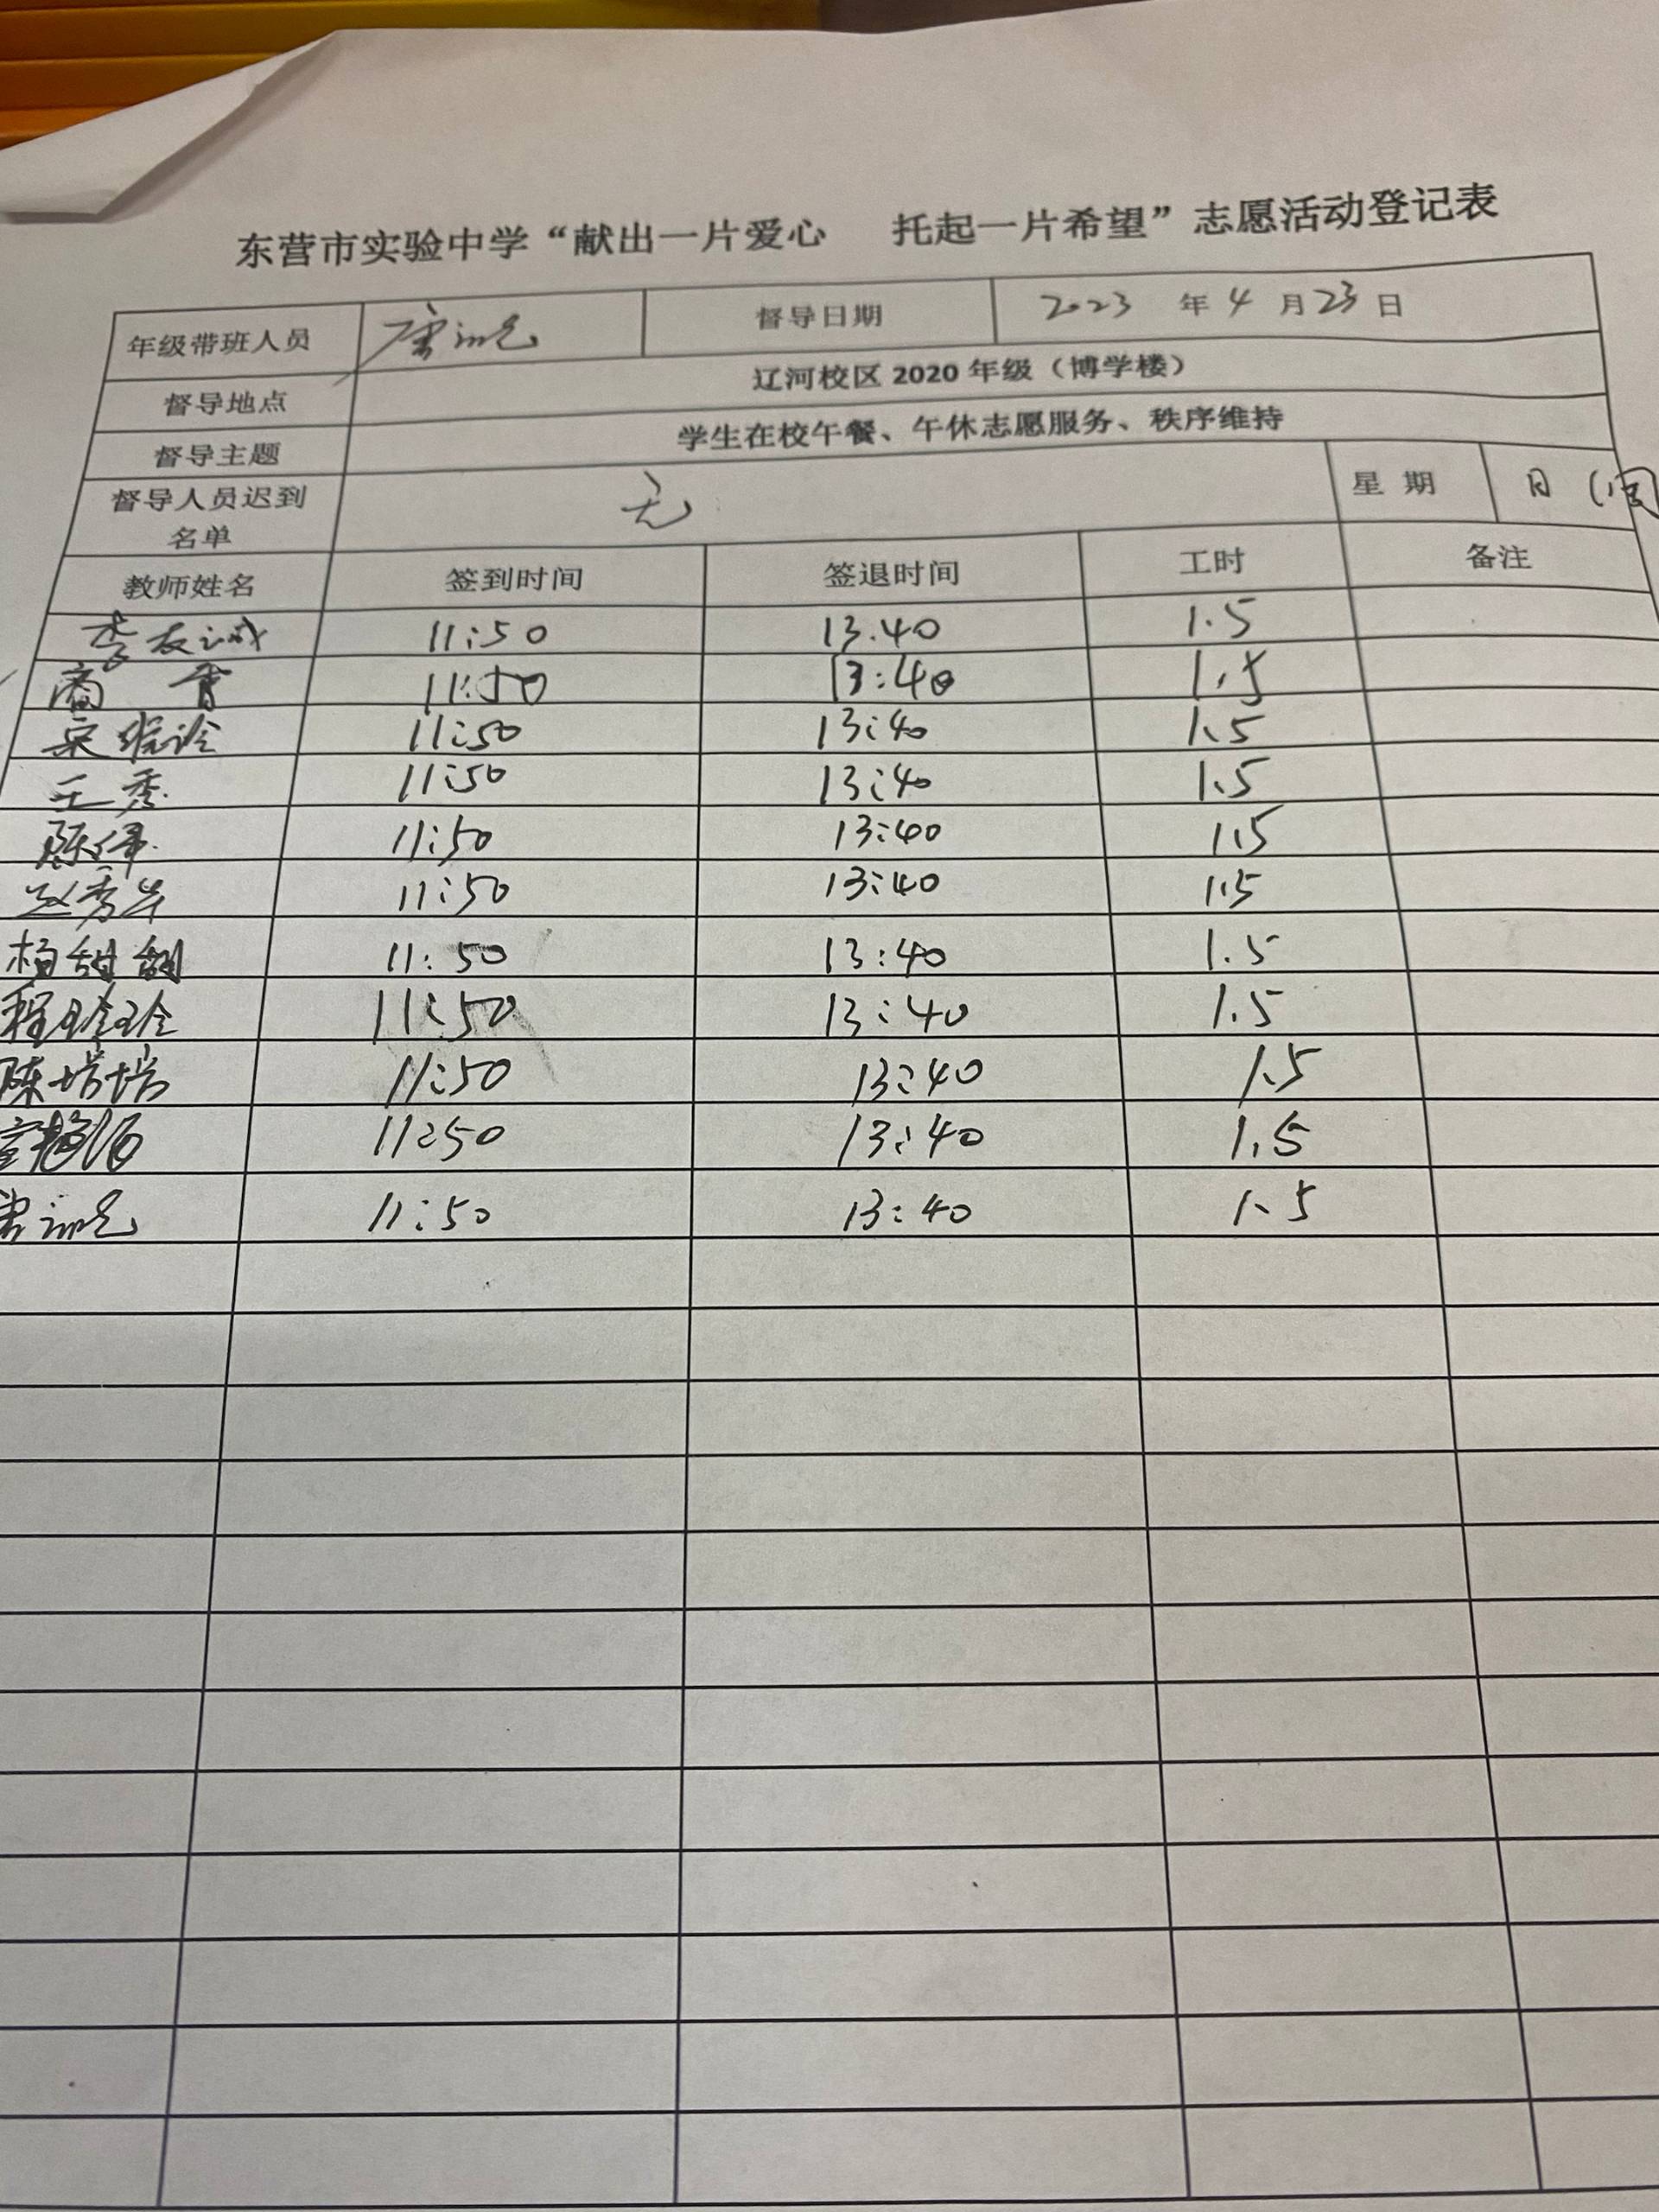 东营市实验中学“献出一片爱心 托起一片希望”志愿活动登记表
年级带班人员 督导日期 2023 年 4 月 23 日
督导地点 辽河校区 2020 年级（博学楼）
督导主题 学生在校午餐、午休志愿服务、秩序维持
督导人员迟到名单 无 星 期 日
教师姓名 签到时间 签退时间 工时 备注
李友诚 11:50 13.40 1.5
商 青 11:50 13:40 1.5
11:50 13:40 1.5
王秀 11:50 13:40 1.5
陈伟 11:50 13:40 1.5
赵秀华 11:50 13:40 1.5
杨甜甜 11:50 13:40 1.5
程玲玲 11:50 13:40 1.5
陈培培 11:50 13:40 1.5
11:50 13:40 1.5
11:50 13:40 1.5